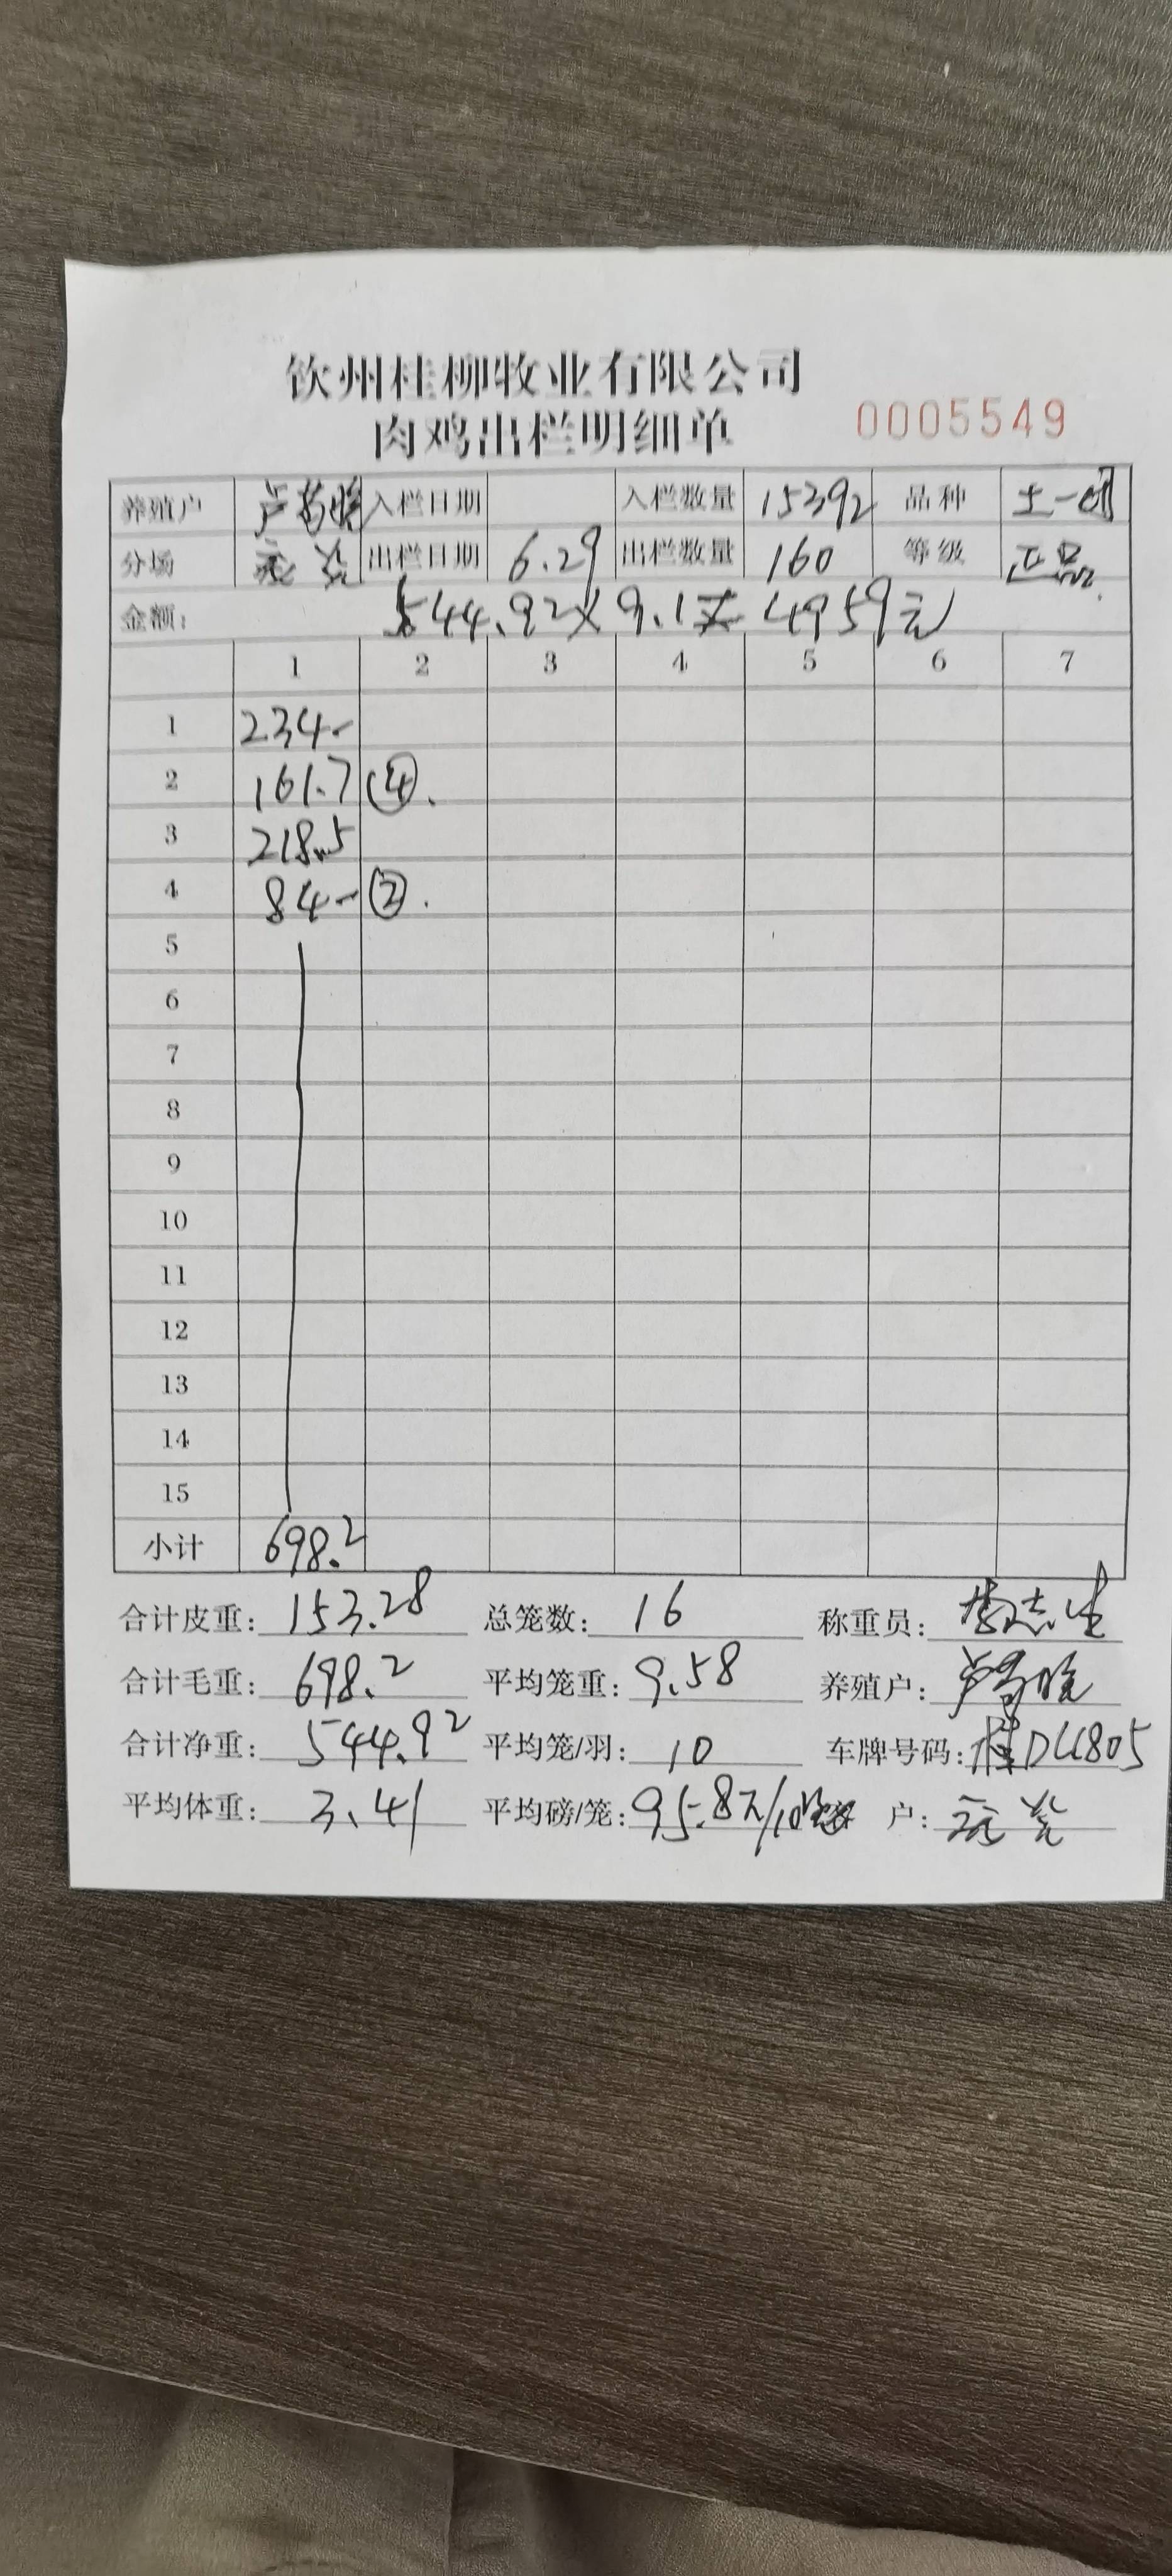 钦州桂柳牧业有限公司
肉鸡出栏明细单 0005549
养殖户 卢 入栏日期 入栏数量 15392 品种 土一
分场 出栏日期 6.29 出栏数量 160 等级 正品
金额: 544.92×9.1元=4959元
1 2 3 4 5 6 7
1 234-
2 161.7 ④.
3 218.5
4 84- ②.
5
6
7
8
9
10
11
12
13
14
15
小计 698.2
合计皮重: 153.28 总笼数: 16 称重员: 李志生
合计毛重: 698.2 平均笼重: 9.58 养殖户: 卢
合计净重: 544.92 平均笼/羽: 10 车牌号码: 桂DU805
平均体重: 3.41 平均磅/笼: 95.8 户: